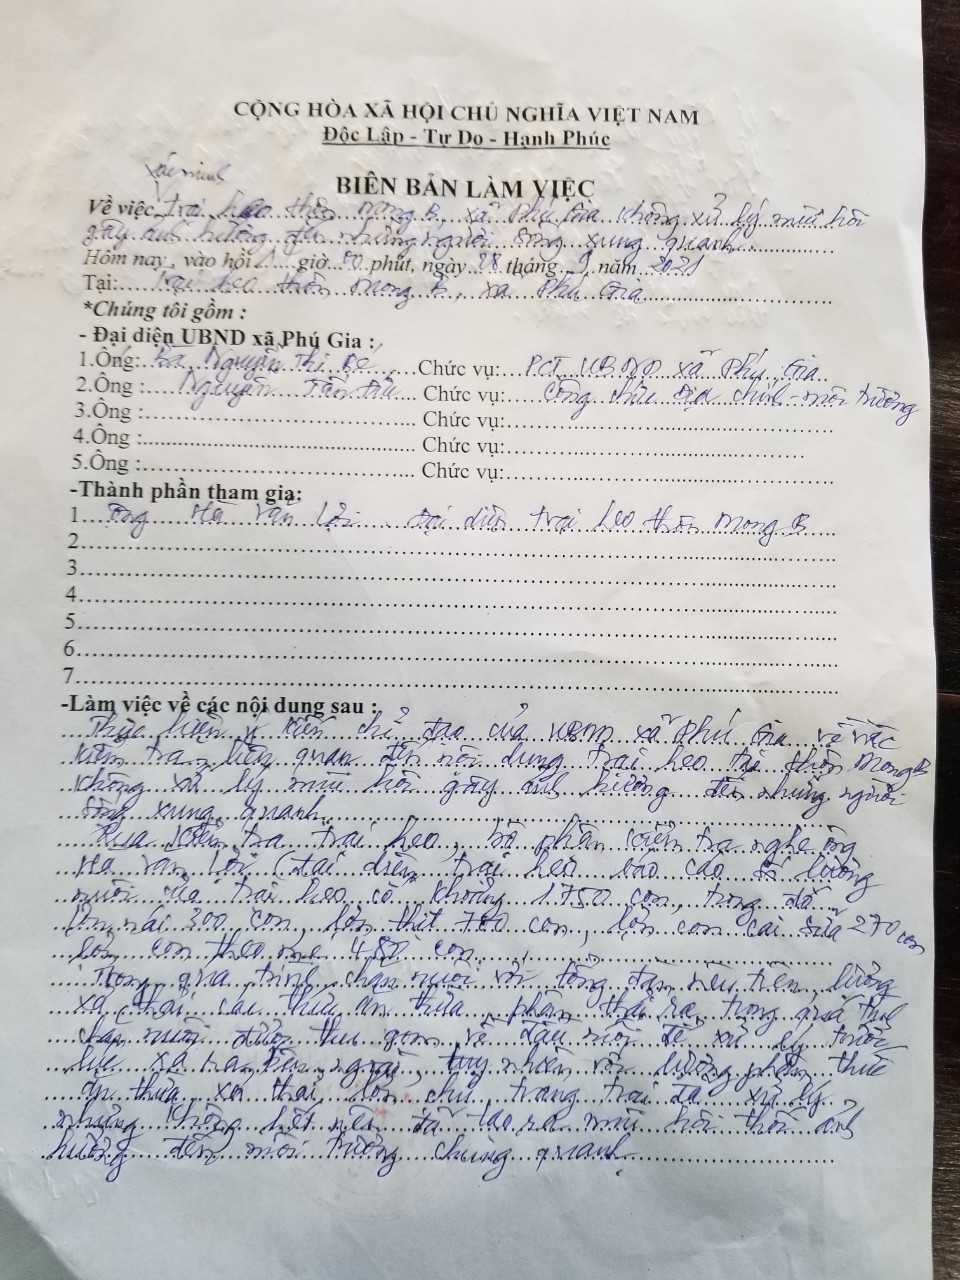 CỘNG HÒA XÃ HỘI CHỦ NGHĨA VIỆT NAM
Độc Lập - Tự Do - Hạnh Phúc
xác minh
BIÊN BẢN LÀM VIỆC
Về việc trại heo thôn Mong B, xã Phú Gia không xử lý mùi hôi
gây ảnh hưởng đến những người sống xung quanh
Hôm nay, vào hồi giờ 00 phút, ngày 28 tháng 9 năm 2021
Tại: Trại heo thôn Mong B, xã Phú Gia
*Chúng tôi gồm :
- Đại diện UBND xã Phú Gia :
1.Ông: Bà Nguyễn Thị Bé Chức vụ: PCT UBND xã Phú Gia
2.Ông : Nguyễn Tấn Chức vụ: Công chức địa chính - môi trường
3.Ông : Chức vụ:
4.Ông : Chức vụ:
5.Ông : Chức vụ:
-Thành phần tham gia:
1 Ông Hà Văn Lợi Đại diện trại heo thôn Mong B
2
3
4
5
6
7
-Làm việc về các nội dung sau :
Thực hiện ý kiến chỉ đạo của UBND xã Phú Gia về việc
kiểm tra liên quan đến nội dung trại heo tại thôn Mong B
không xử lý mùi hôi gây ảnh hưởng đến những người
sống xung quanh
Qua kiểm tra trại heo, bộ phận kiểm tra nghe ông
Hà Văn Lợi (đại diện trại heo báo cáo số lượng
nuôi của trại heo có khoảng 1.750 con, trong đó
lợn nái 300 con, lợn thịt 700 con, lợn con cai sữa 270 con
lợn con theo mẹ 480 con
Trong quá trình chăn nuôi với tổng đàn nêu trên, lượng
xả thải các thức ăn thừa, phân thải ra trong quá trình
chăn nuôi được thu gom về đầu mối để xử lý trước
khi xả ra bên ngoài, tuy nhiên với lượng phân, thức
ăn thừa xả thải lớn chủ trang trại đã xử lý
nhưng không hết nên đã tạo ra mùi hôi thối ảnh
hưởng đến môi trường chung quanh